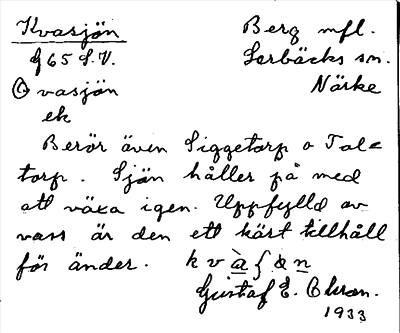 Kvasjön
Berg mfl.
G 65 S.V.
Lerbäcks sn.
Kvasjön
Närke
ek
Berör även Siggetorp o Tal=
torp. Sjön håller på med
att växa igen. Uppfylld av
vass är den ett kärt tillhåll
för änder. k v a ʃ ö n
Gustaf E. Okran.
1933